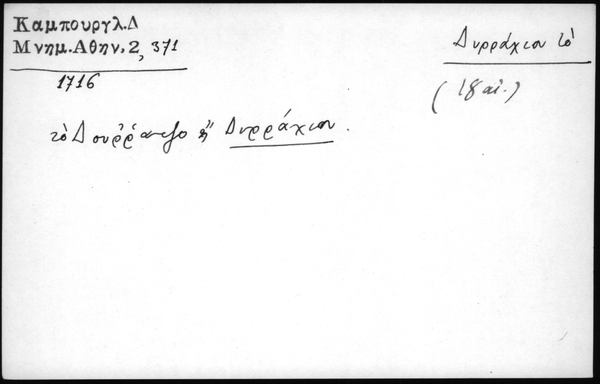 Καμπουργλ.Δ
Μνημ.Αθην.2, 371
1716
Δυρράχιον τὸ
(18 αἰ.)
τὸ Δουῤῥάτζο ἢ Δυρράχιον.